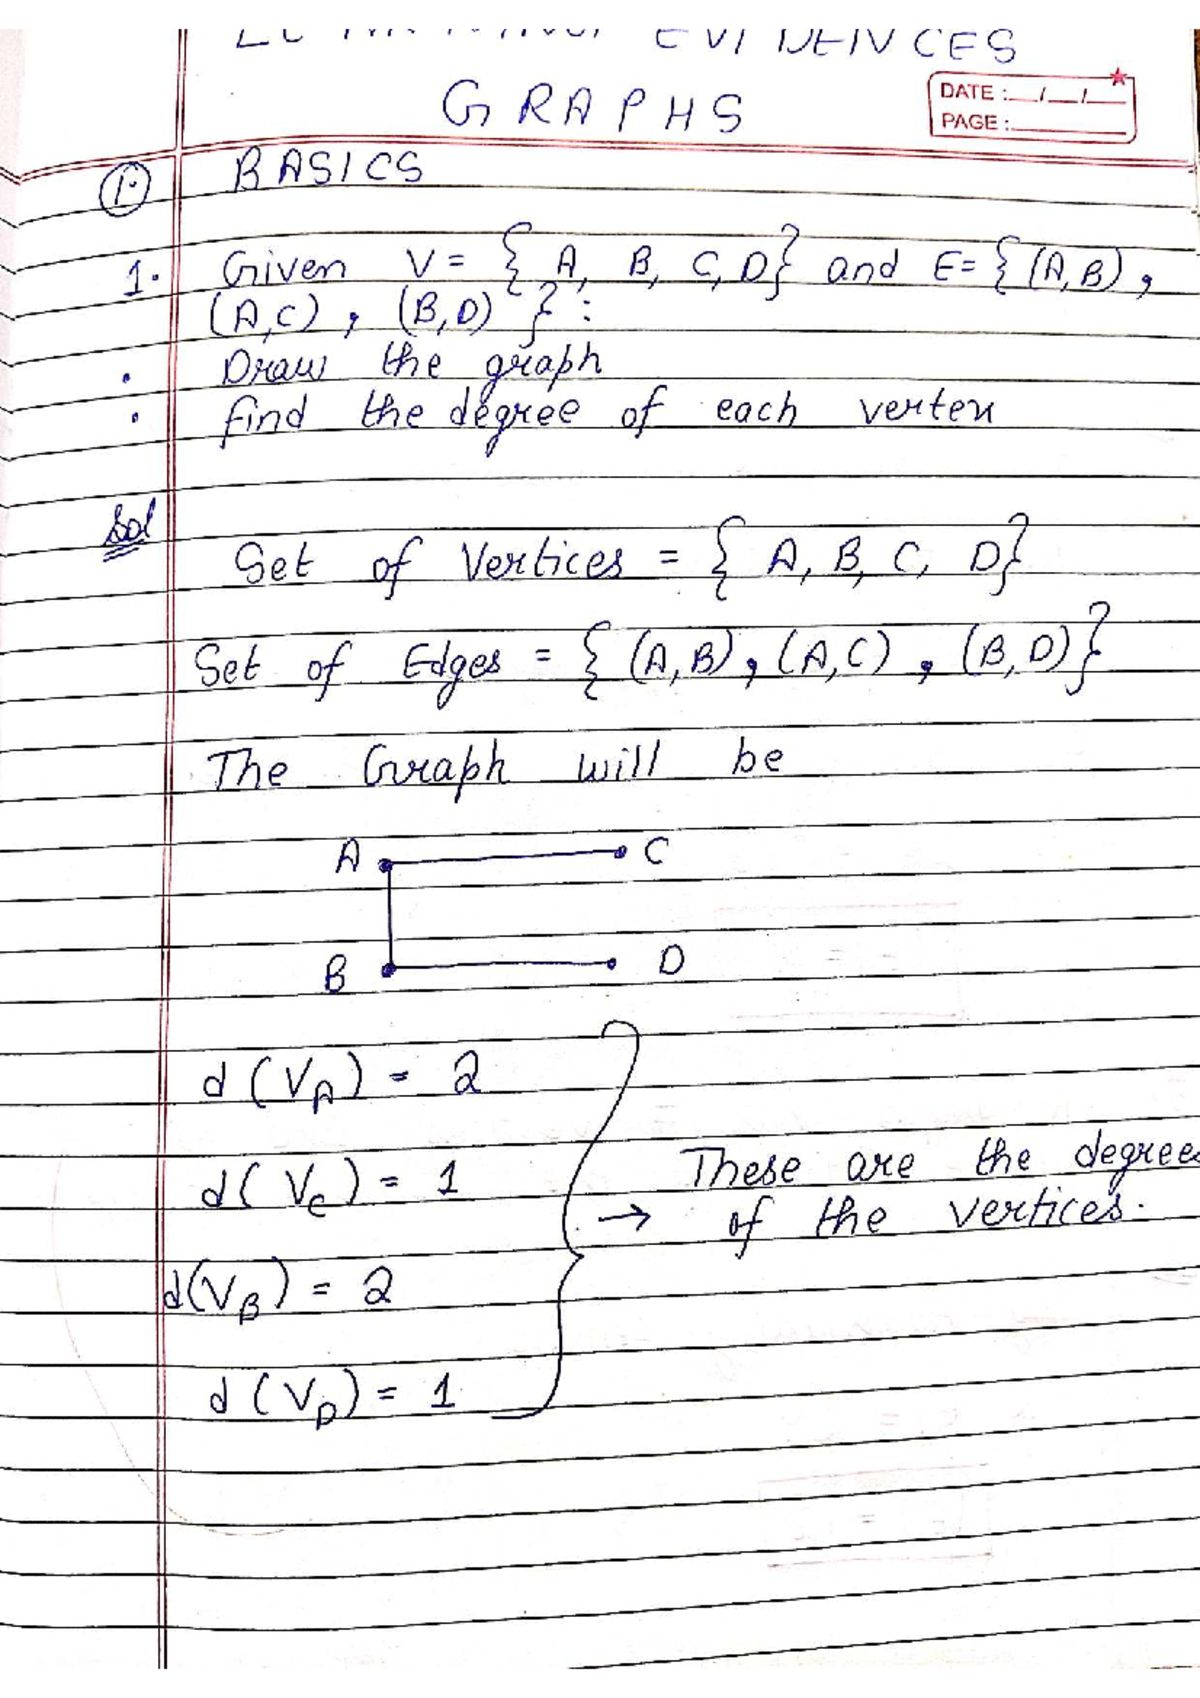 EVIDENCES
GRAPHS
DATE :__/__/__
PAGE :
1. BASICS
1. Given V = { A, B, C, D} and E= { (A,B) ,
(A,C) , (B,D) } :
• Draw the graph
• find the degree of each vertex
Sol
Set of Vertices = { A, B, C, D}
Set of Edges = { (A,B), (A,C) , (B,D)}
The Graph will be
A C
B D
d (V_A) = 2
d( V_C) = 1
These are the degrees
→ of the vertices.
d(V_B) = 2
d (V_D) = 1